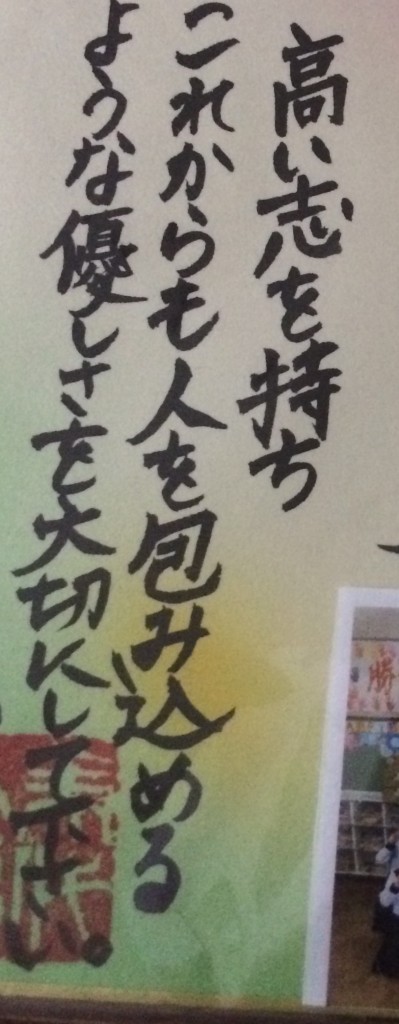 高い志を持ち
これからも人を包み込める
ような優しさを大切にして下さい。
勝